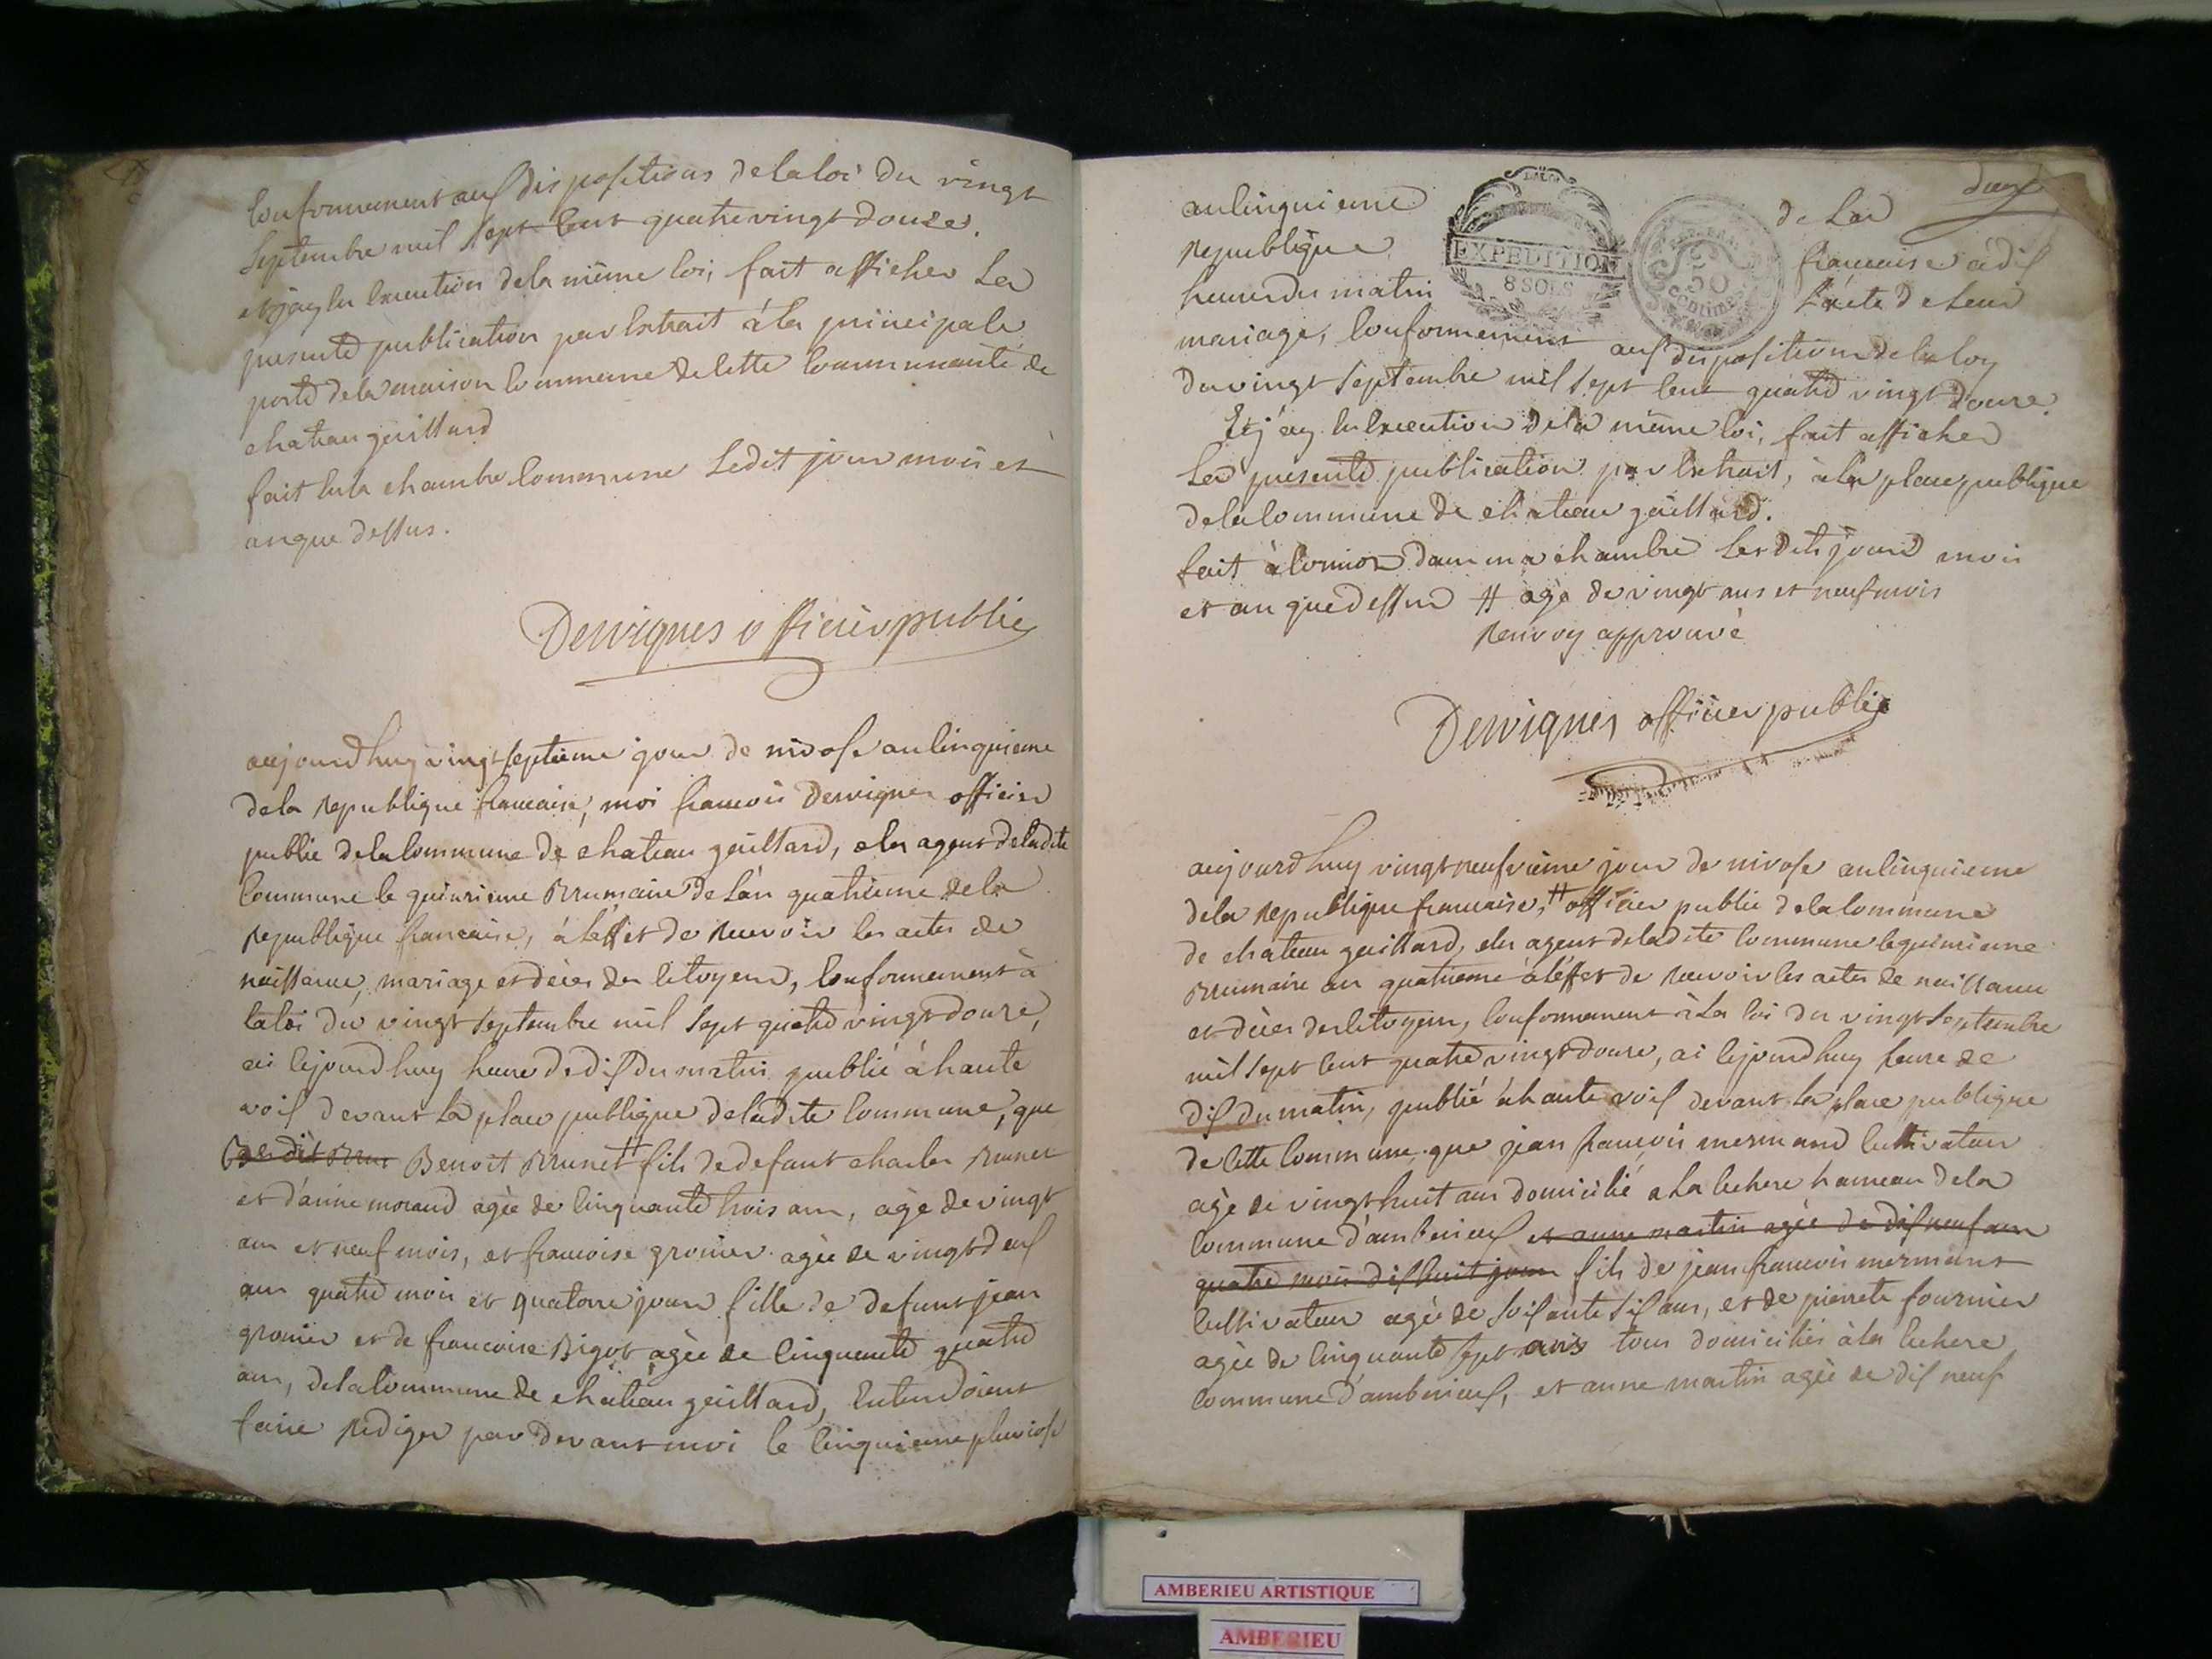 conformement aux dispositions de la loi du vingt
septembre mil sept cent quatre vingt douze.
et j'ay en execution de la même loi, fait afficher la
presente publication par extrait à la principale
porte de la maison commune de cette communauté de
chateau gaillard
fait en la chambre commune ledit jour mois et
an que dessus.
Dervignes officier public
aujourdhuy vingt septieme jour de nivose an cinquieme
de la republique francaise, moi francois Dervignes officier
public de la commune de chateau gaillard, elu agent de ladite
commune le quinzieme Brumaire de l'an quatrieme de la
republique francaise, à l'effet de recevoir les actes de
naissance, mariage et décès des citoyens, conformement à
la loi du vingt septembre mil sept quatre vingt douze,
ai cejourdhuy heure de dix du matin publié à haute
voix devant la place publique de ladite commune, que
Benoit Brunet # fils de defunt charles Brunet
et d'anne morand agée de cinquante trois ans, agé de vingt
ans et neuf mois, et francoise gronier agée de vingt deux
ans quatre mois et quatorze jours fille de defunt jean
gronier et de francoise Bigot agée de cinquante quatre
ans, de la commune de chateau gaillard, entendoient
faire rediger par devant moi le cinquieme pluviose
deux
an cinquieme de la
republique francaise à dix
heures du matin l'acte de leur
EXPEDITION
8 SOLS
50
CENTIMES
mariage, conformement aux dispositions de la loy
du vingt septembre mil sept cent quatre vingt douze.
Et j'ay en execution de la même loi, fait afficher
la presente publication par extrait, à la place publique
de la commune de chateau gaillard.
fait à cormoz dans ma chambre lesdits jours mois
et an que dessus # agé de vingt ans et neuf mois
renvoy approuvé
Dervignes officier public
aujourdhuy vingt neufvième jour de nivose an cinquieme
de la republique francaise, # officier public de la commune
de chateau gaillard, elu agent de ladite commune le quinzieme
Brumaire an quatrieme à l'effet de recevoir les actes de naissance
et décès des citoyens, conformement à la loi du vingt septembre
mil sept cent quatre vingt douze, ai cejourdhuy heure de
dix du matin, publié à haute voix devant la place publique
de cette commune que jean francois mermand cultivateur
agé de vingt huit ans domicilié a la lechere hameau de la
commune d'amberieux et anne martin agée de dix neuf ans
quatre mois dix huit jours fils de jean francois mermant
cultivateur agée de soixante six ans, et de pierrete fournier
agée de cinquante sept ans tous domiciliés à la lechere
commune d'amberieux, et anne martin agée de dix neuf
AMBERIEU ARTISTIQUE
AMBERIEU